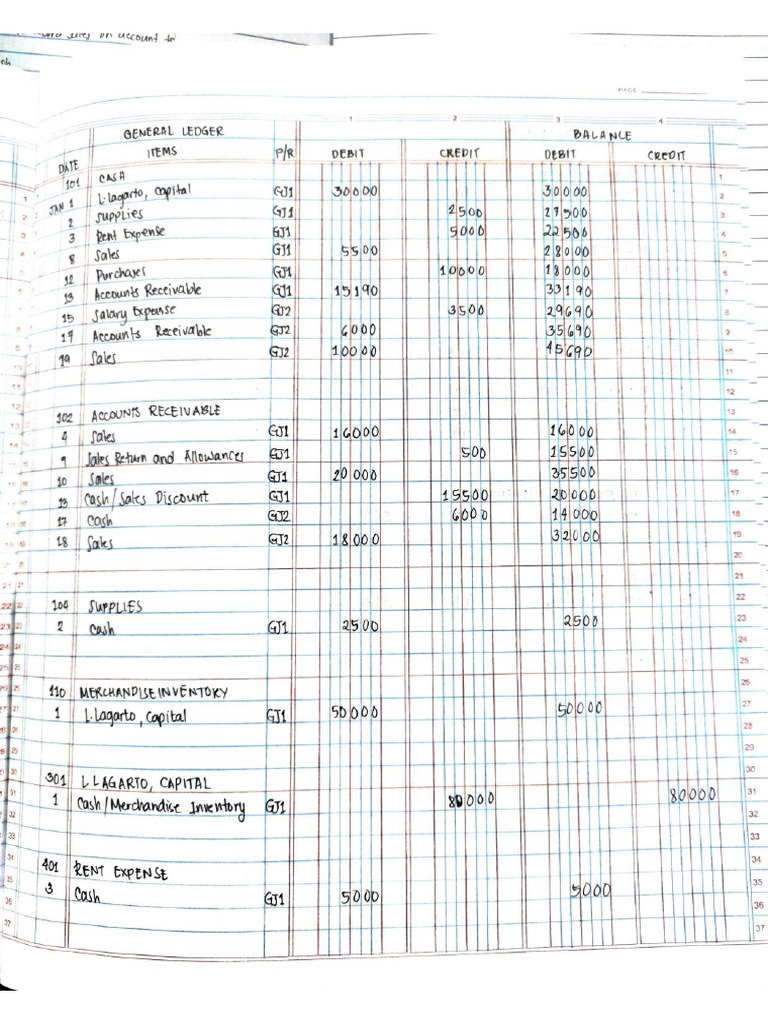 sales on account to
PAGE
1 2 3 4
GENERAL LEDGER BALANCE
DATE ITEMS P/R DEBIT CREDIT DEBIT CREDIT
101 CASH
JAN 1 L.lagarto, capital GJ1 30000 30000
2 Supplies GJ1 2500 27500
3 Rent Expense GJ1 5000 22500
8 Sales GJ1 5500 28000
12 Purchases GJ1 10000 18000
13 Accounts Receivable GJ1 15190 33190
15 Salary Expense GJ2 3500 29690
17 Accounts Receivable GJ2 6000 35690
19 Sales GJ2 10000 45690
102 ACCOUNTS RECEIVABLE
4 Sales GJ1 16000 16000
9 Sales Return and Allowances GJ1 500 15500
10 Sales GJ1 20000 35500
13 Cash/Sales Discount GJ1 15500 20000
17 Cash GJ2 6000 14000
18 Sales GJ2 18000 32000
104 SUPPLIES
2 Cash GJ1 2500 2500
110 MERCHANDISE INVENTORY
1 L.lagarto, capital GJ1 50000 50000
301 L LAGARTO, CAPITAL
1 Cash/Merchandise Inventory GJ1 80000 80000
401 RENT EXPENSE
3 Cash GJ1 5000 5000